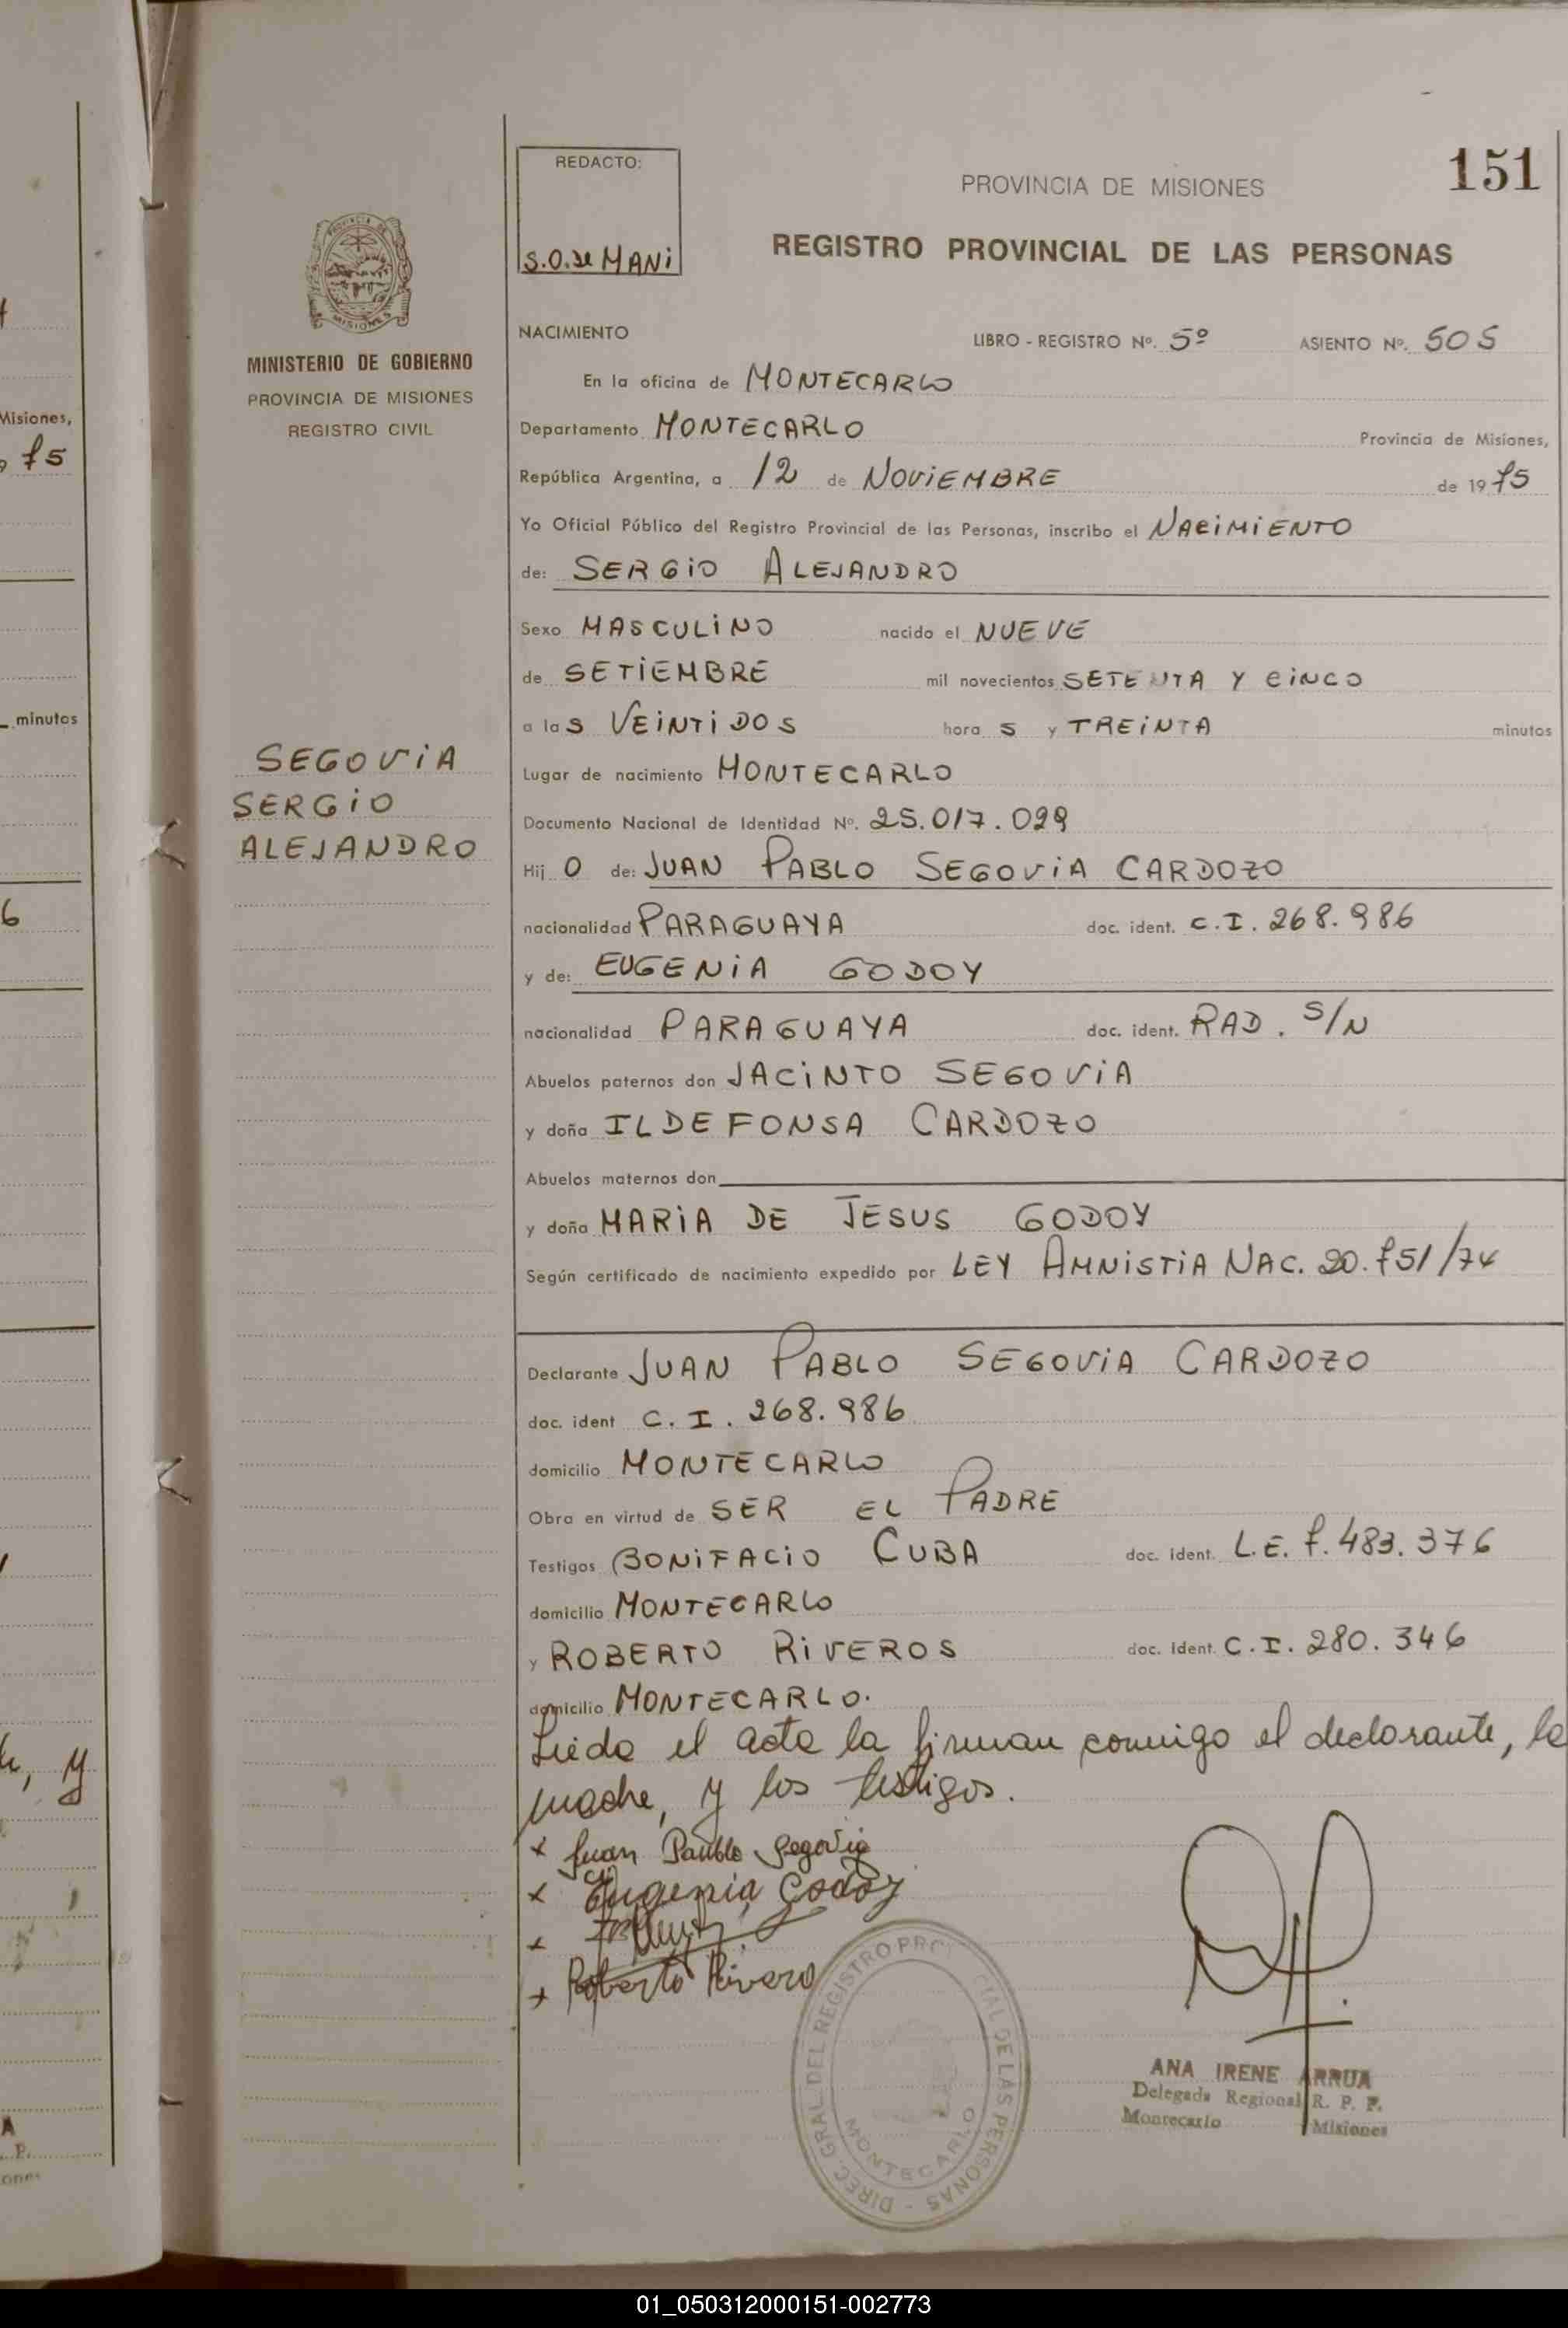 REDACTO:
S.O. de MANI
PROVINCIA DE MISIONES
151
REGISTRO PROVINCIAL DE LAS PERSONAS
PROVINCIA DE
MISIONES
MINISTERIO DE GOBIERNO
PROVINCIA DE MISIONES
REGISTRO CIVIL
NACIMIENTO
LIBRO - REGISTRO Nº. 5º ASIENTO Nº. 505
En la oficina de MONTECARLO
Departamento MONTECARLO Provincia de Misiones,
República Argentina, a 12 de NOVIEMBRE de 1975
Yo Oficial Público del Registro Provincial de las Personas, inscribo el NACIMIENTO
de: SERGIO ALEJANDRO
Sexo MASCULINO nacido el NUEVE
de SETIEMBRE mil novecientos SETENTA Y CINCO
a las VEINTIDOS hora s y TREINTA minutos
Lugar de nacimiento MONTECARLO
Documento Nacional de Identidad Nº. 25.017.029
Hijo de: JUAN PABLO SEGOVIA CARDOZO
nacionalidad PARAGUAYA doc. ident. C.I. 268.986
y de: EUGENIA GODOY
nacionalidad PARAGUAYA doc. ident. RAD. S/N
Abuelos paternos don JACINTO SEGOVIA
y doña ILDEFONSA CARDOZO
Abuelos maternos don
y doña MARIA DE JESUS GODOY
Según certificado de nacimiento expedido por LEY AMNISTIA NAC. 20.751/74
Declarante JUAN PABLO SEGOVIA CARDOZO
doc. ident C.I. 268.986
domicilio MONTECARLO
Obra en virtud de SER EL PADRE
Testigos BONIFACIO CUBA doc. ident. L.E. 7.483.376
domicilio MONTECARLO
y ROBERTO RIVEROS doc. ident. C.I. 280.346
domicilio MONTECARLO.
Leída el acta la firman conmigo el declarante, la
madre, y los testigos.
x Juan Pablo Segovia
x Eugenia Godoy
x
x Roberto Rivero
SEGOVIA
SERGIO
ALEJANDRO
DIREC. GRAL. DEL REGISTRO PRO CIAL DE LAS PERSONAS -
MONTECARLO
ANA IRENE ARRUA
Delegada Regional R. P. P.
Montecarlo Misiones
Misiones,
75
minutos
6
, y
A
. P.
ones
01_050312000151-002773